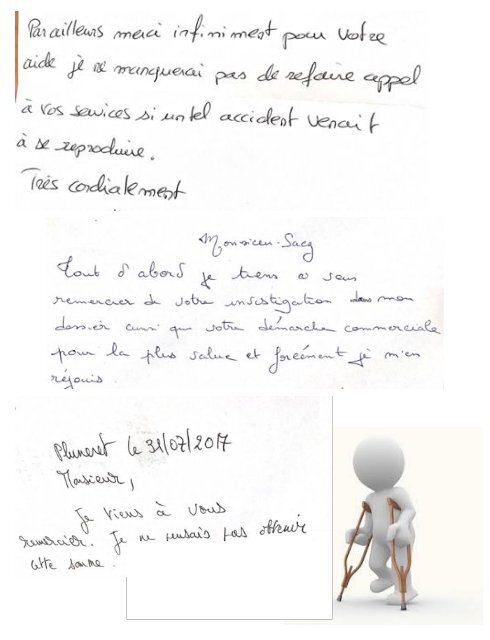 Par ailleurs merci infiniment pour votre
aide je ne manquerai pas de refaire appel
à vos services si un tel accident venait
à se reproduire.
Très cordialement
Monsieur
Tout d'abord je tiens a vous
remercier de votre investigation dans mon
dossier aussi que votre démarche commerciale
pour la plus value et forcément je m'en
réjouis.
Pluneret le 31/07/2017
Monsieur,
Je viens à vous
remercier. Je ne pensais pas obtenir
cette somme.